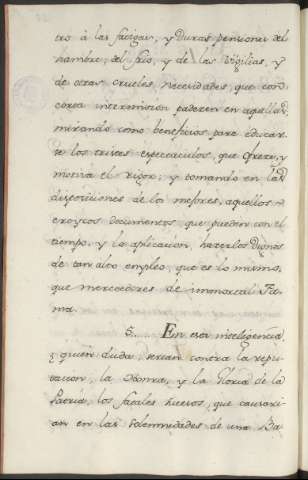 tro à las fatigas, y duras pensiones del
hambre, del frio, y de las vigilias, y
de otras crueles necesidades, que con
corta intermision padecen en aquellas
mirando como beneficios para educar-
se los tristes espectaculos, que ofrece, y
motiva el rigor; y tomando en las
disposiciones de los mejores, aquellos
eroycos documentos que pueden con el
tiempo, y la aplicacion, hacerlos dignos
de tan alto empleo, que es lo mismo,
que merecedores de immortal Fa-
ma.
5... En esta inteligencia,
y quien duda, serian contra la repu-
tacion, la Honra, y la Gloria de la
Patria, los fatales huecos, que causari-
an en las solemnidades de una Ba